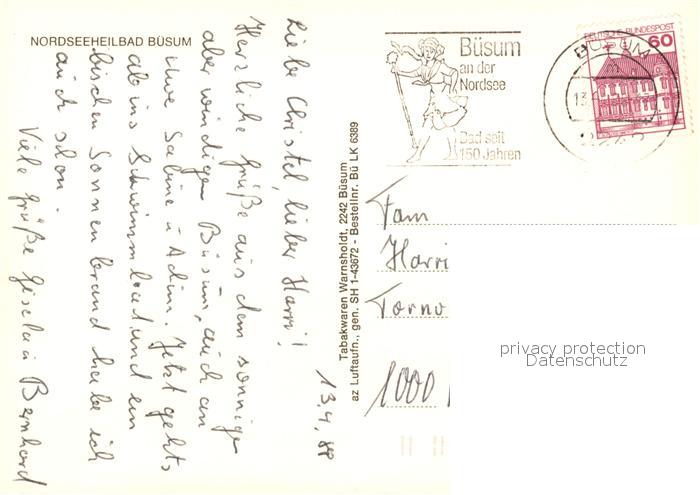 NORDSEEHEILBAD BÜSUM
13.4.88
Liebe Christel, lieber Harri!
Herzliche Grüße aus dem sonnigen
aber windigen Büsum, auch an
Uwe Sabine u. Achim. Jetzt gehts
ab ins Schwimmbad und ein
bischen Sonnenbrand habe ich
auch schon.
Viele Grüße Gisela u. Bernhard
Tabakwaren Warnsholdt, 2242 Büsum
az Luftaufn., gen. SH 1-43672 - Bestellnr. Bü LK 6389
Büsum
an der
Nordsee
Bad seit
150 Jahren
BÜSUM
13
DEUTSCHE BUNDESPOST
60
Fam
Harri
Torno
1000
privacy protection
Datenschutz